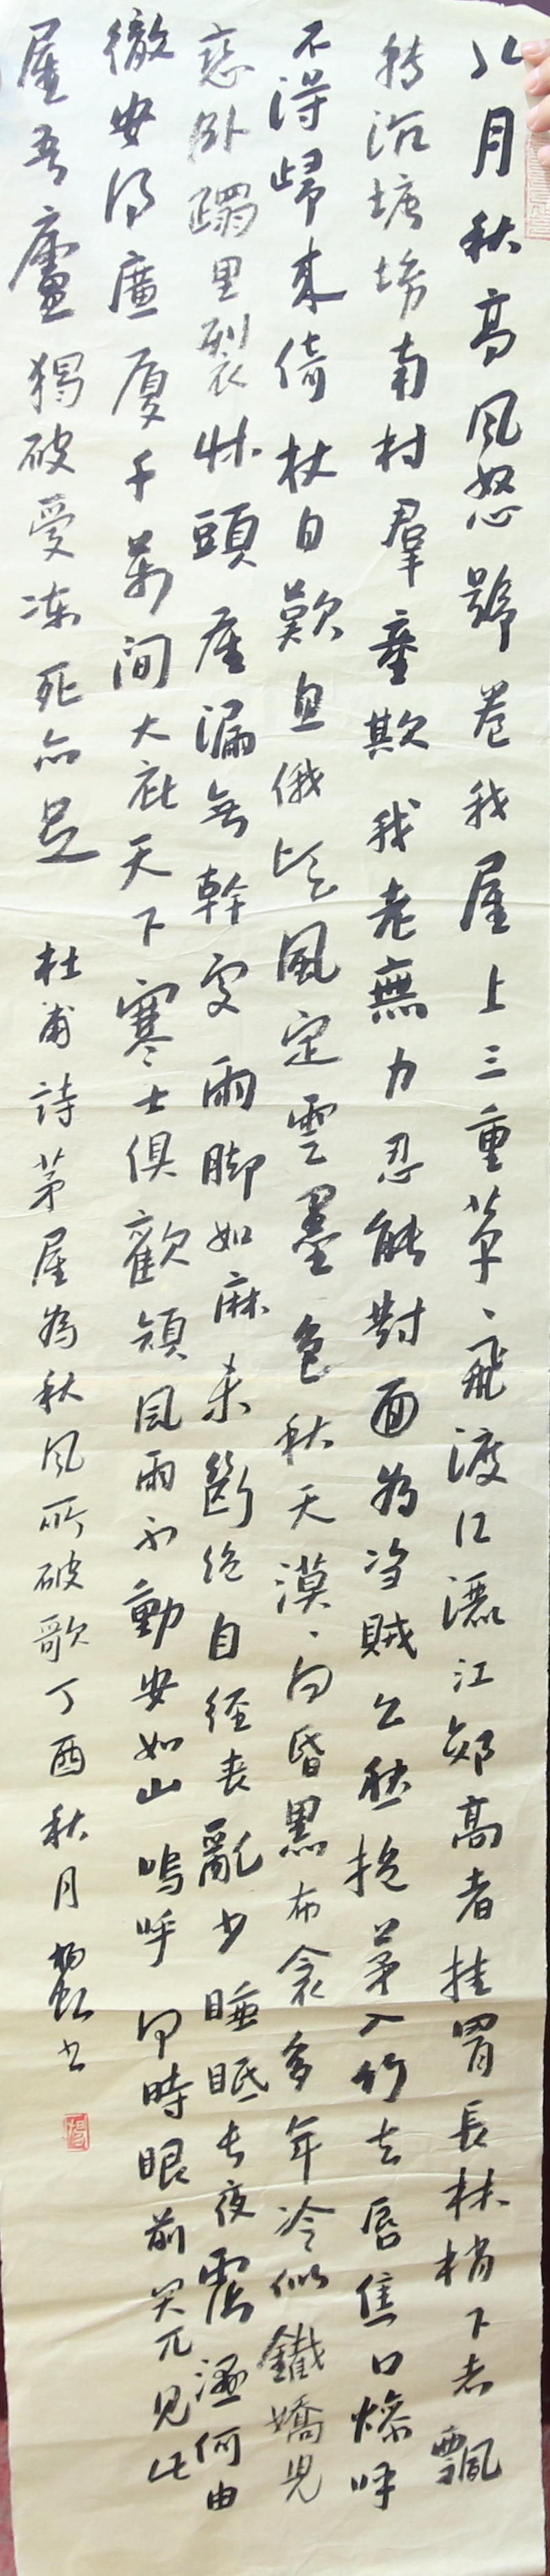 八月秋高風怒號卷我屋上三重茅、飛渡江灑江郊高者挂罥長林梢下者飄
轉沉塘坳南村羣童欺我老無力忍能對面為盗賊公然抱茅入竹去唇焦口燥呼
不得歸来倚杖自歎息俄頃風定雲墨色秋天漠、向昏黑布衾多年冷似鐵嬌兒
惡卧蹋里裂牀頭屋漏無幹處雨脚如麻未斷絶自經喪亂少睡眠長夜霑濕何由
徹安得廣厦千萬间大庇天下寒士俱歡顔風雨不動安如山嗚呼何時眼前突兀見此
屋吾廬獨破受凍死亦足 杜甫詩茅屋為秋风所破歌丁酉秋月 书